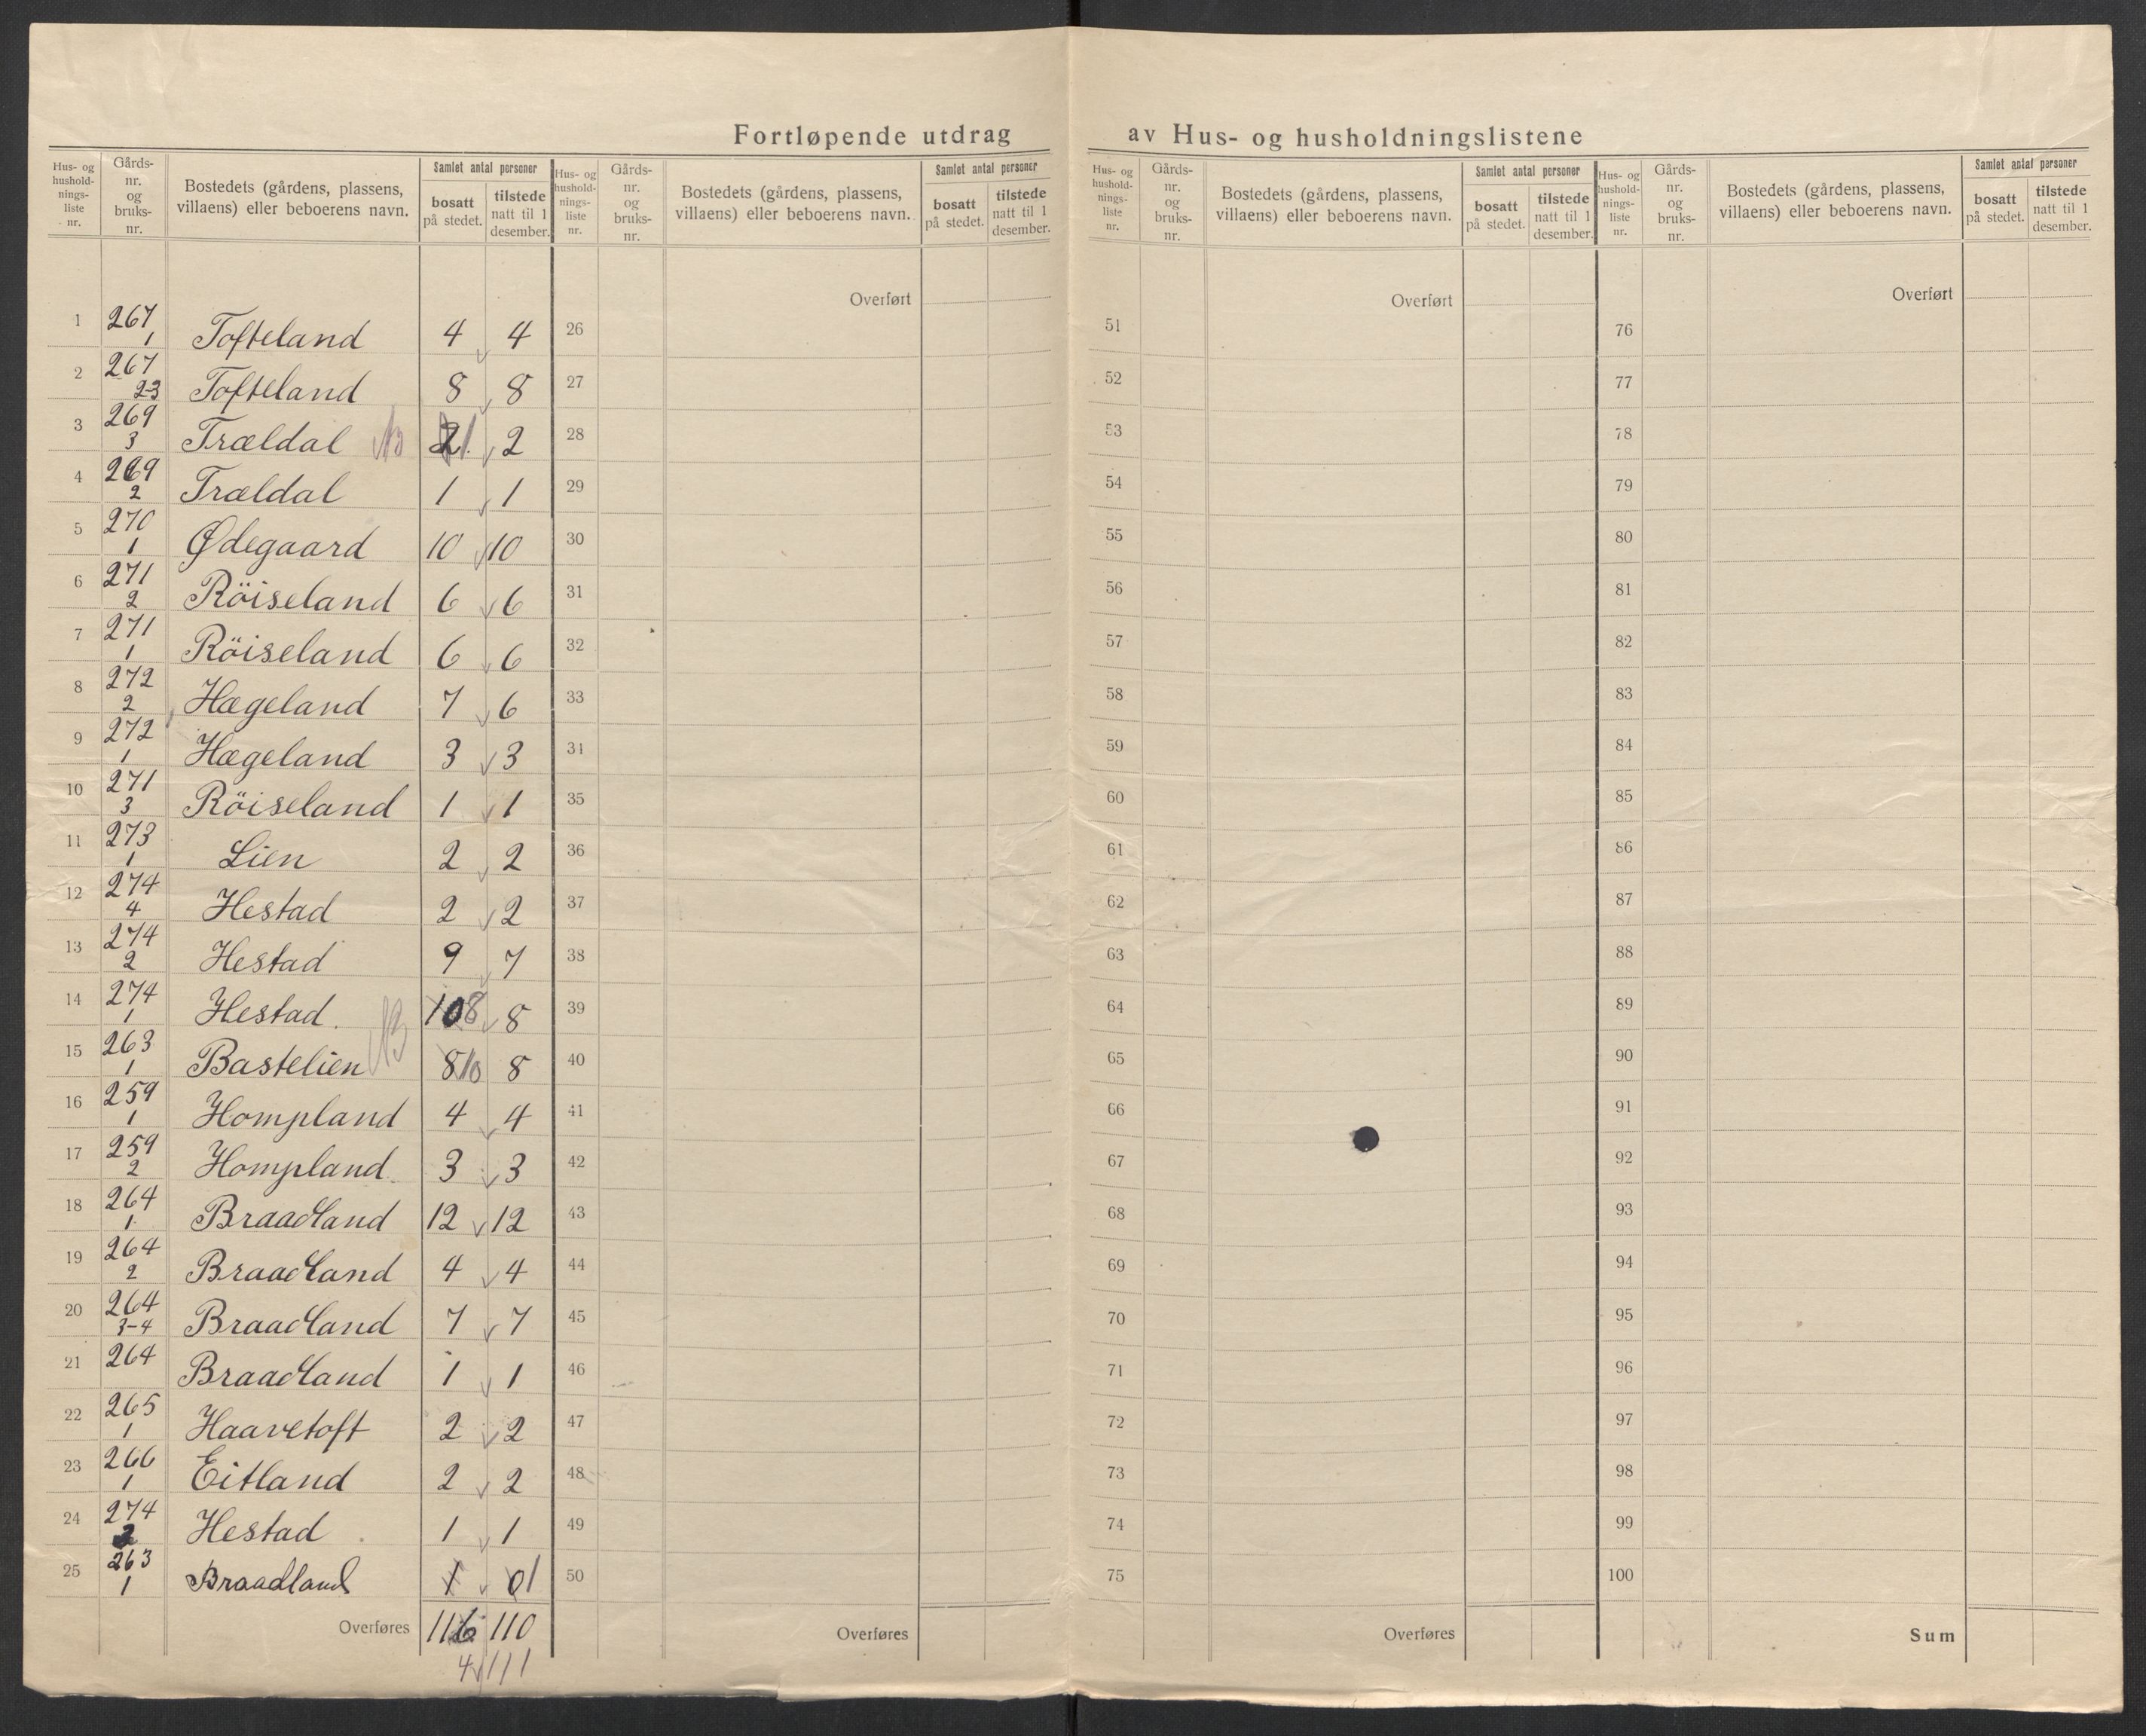 Fortløpende utdrag av Hus- og husholdningslistene
Hus- og husholdnings-liste nr. | Gårds-nr. og bruks-nr. | Bostedets (gårdens, plassens, villaens) eller beboerens navn. | Samlet antal personer | bosatt på stedet. | tilstede natt til 1 desember.
Hus- og husholdnings-liste nr. | Gårds-nr. og bruks-nr. | Bostedets (gårdens, plassens, villaens) eller beboerens navn. | Samlet antal personer | bosatt på stedet. | tilstede natt til 1 desember.
Hus- og husholdnings-liste nr. | Gårds-nr. og bruks-nr. | Bostedets (gårdens, plassens, villaens) eller beboerens navn. | Samlet antal personer | bosatt på stedet. | tilstede natt til 1 desember.
Hus- og husholdnings-liste nr. | Gårds-nr. og bruks-nr. | Bostedets (gårdens, plassens, villaens) eller beboerens navn. | Samlet antal personer | bosatt på stedet. | tilstede natt til 1 desember.
Overført Overført Overført
1 267 1 Tofteland 4 4 26 51 76
2 267 2-3 Tofteland 8 8 27 52 77
3 269 3 Trældal 2 1 2 28 53 78
4 269 2 Trældal 1 1 29 54 79
5 270 1 Ødegaard 10 10 30 55 80
6 271 2 Röiseland 6 6 31 56 81
7 271 1 Röiseland 6 6 32 57 82
8 272 2 Hægeland 7 6 33 58 83
9 272 1 Hægeland 3 3 34 59 84
10 271 3 Röiseland 1 1 35 60 85
11 273 1 Lien 2 2 36 61 86
12 274 4 Hestad 2 2 37 62 87
13 274 2 Hestad 9 7 38 63 88
14 274 1 Hestad. 10 8 8 39 64 89
15 263 1 Bastelien 8 10 8 40 65 90
16 259 1 Hompland 4 4 41 66 91
17 259 2 Hompland 3 3 42 67 92
18 264 1 Braadland 12 12 43 68 93
19 264 2 Braadland 4 4 44 69 94
20 264 3-4 Braadland 7 7 45 70 95
21 264 Braadland 1 1 46 71 96
22 265 1 Haavetoft 2 2 47 72 97
23 266 1 Eitland 2 2 48 73 98
24 274 Hestad 1 1 49 74 99
25 263 1 Braadland 1 0 1 50 75 100
Overføres 116 110 Overføres Overføres Sum
4 111